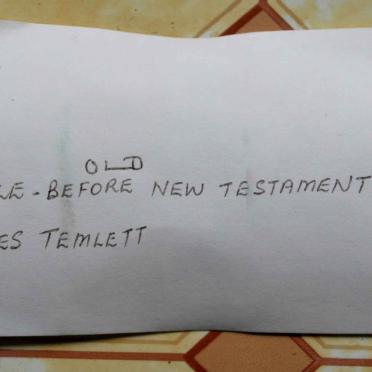 OLD
LE - BEFORE NEW TESTAMENT
ES TEMLETT